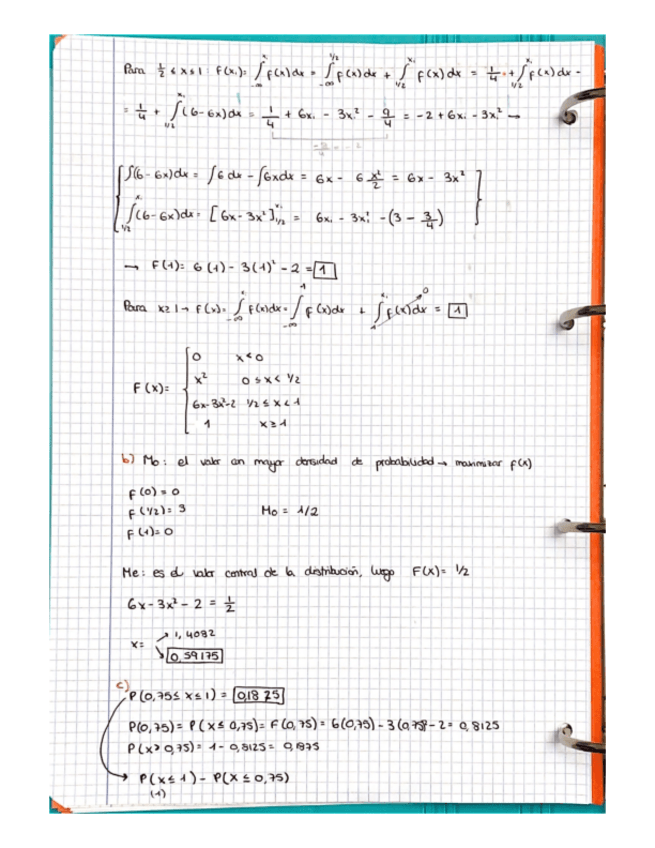 Para 1/2 ≤ x ≤ 1: F(xi) = ∫_{-∞}^{xi} f(x)dx = ∫_{-∞}^{1/2} f(x)dx + ∫_{1/2}^{xi} f(x)dx = 1/4 + ∫_{1/2}^{xi} f(x)dx =
= 1/4 + ∫_{1/2}^{xi} (6-6x)dx = 1/4 + 6xi - 3xi² - 9/4 = -2 + 6xi - 3xi² →
-9/4 = -2
∫(6-6x)dx = ∫6 dx - ∫6xdx = 6x - 6 x²/2 = 6x - 3x²
∫_{1/2}^{xi} (6-6x)dx = [6x-3x²]_{1/2}^{xi} = 6xi - 3xi² - (3 - 3/4)
→ F(1) = 6(1) - 3(1)² - 2 = 1
Para x≥1 → F(x) = ∫_{-∞}^{xi} f(x)dx = ∫_{-∞}^{1} f(x)dx + ∫_{1}^{xi} f(x)dx 0 = 1
F(x) =
0 x<0
x² 0≤x<1/2
6x-3x²-2 1/2≤x<1
1 x≥1
b) Mo: el valor con mayor densidad de probabilidad → maximizar f(x)
f(0)=0
f(1/2)=3 Mo = 1/2
f(1)=0
Me: es el valor central de la distribución, luego F(x)= 1/2
6x-3x²-2 = 1/2
x= 1,4082
0,59175
c)
P(0,75≤ x≤1) = 0,1875
P(0,75) = P(x≤0,75) = F(0,75) = 6(0,75) - 3(0,75)² - 2 = 0,8125
P(x>0,75) = 1-0,8125 = 0,1875
P(x≤1) - P(x≤0,75)
(1)